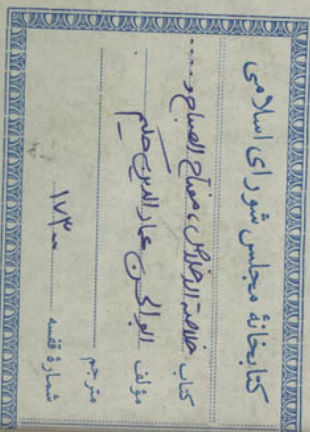 کتابخانهٔ مجلس شورای اسلامی
کتاب خلاصة الاخلاص، مفتاح الصباح و ....
مؤلف ابوالحسن عمادالدین حکیم
مترجم
شمارهٔ قفسه ۱۷۳۰۰